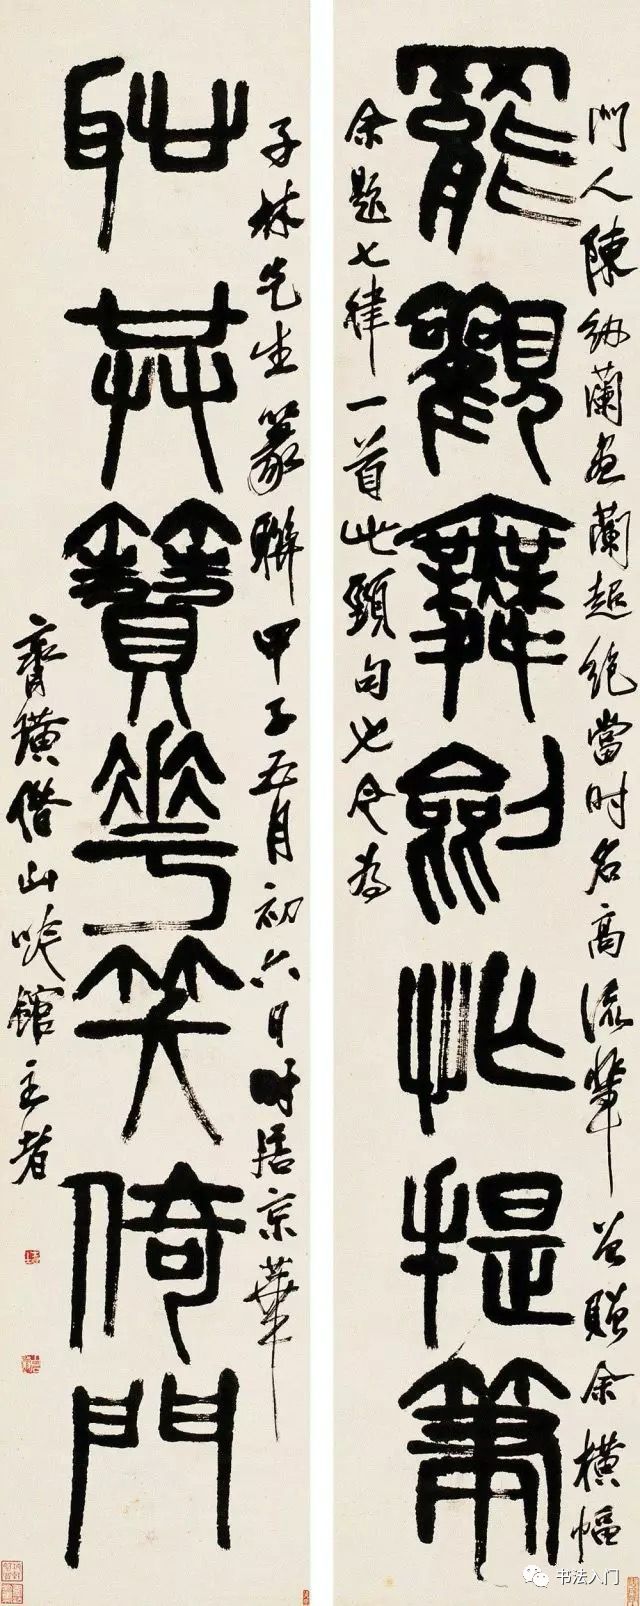 門人陳紉蘭画蘭超絕當时名高流輩曾贈余橫幅
罷觀舞劍忙提筆
余題七律一首此頸句也今為
子林先生篆聯甲子五月初六日时居京華
恥共簪花笑倚門
齊璜借山吟館主者
书法入门